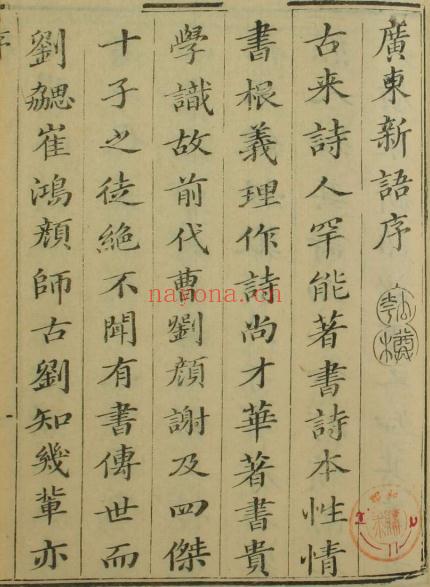 廣東新語序
古来詩人罕能著書詩本性情
書根義理作詩尚才華著書貴
學識故前代曹劉顔謝及四傑
十子之徒絶不聞有書傳世而
劉勰崔鴻顔師古劉知幾輩亦
nayona.cn